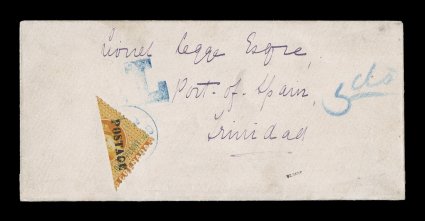 Lionel Legge Esqre,
T
Port-of-Spain,
5 cts
Trinidad
POSTAGE